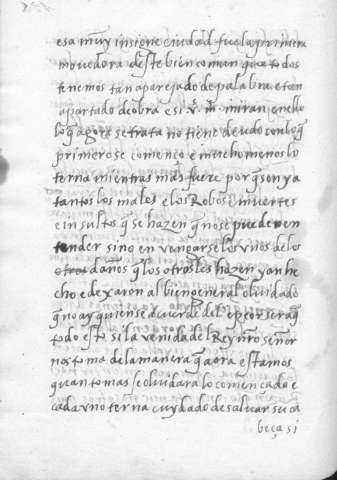 esa muy insigne ciudad fue la primera
movedora deste bien comun que todos
tenemos tan aparejado de palabra e tan
apartado de obra e si v. m. miran en ello
lo q̃ agora se trata no tiene deudo con lo q̃
primero se começo e mucho menos lo
terna mientras mas fuere porq̃ son ya
tantos los males e los Robos e muertes
e insultos q̃ se hazen q̃ no se pueden en
tender sino en vengarse los vnos de los
otros daños q̃ los otros les hazen y an he
cho e dexaron al bien general olvidado
q̃ no ay quien se acuerde del e peor sera q̃
todo esto si la venida del Rey nro señor
nos toma de la manera q̃ aora estamos
quanto mas se oluidara lo començado e
cada vno terna cuydado de saluar su ca
beça si